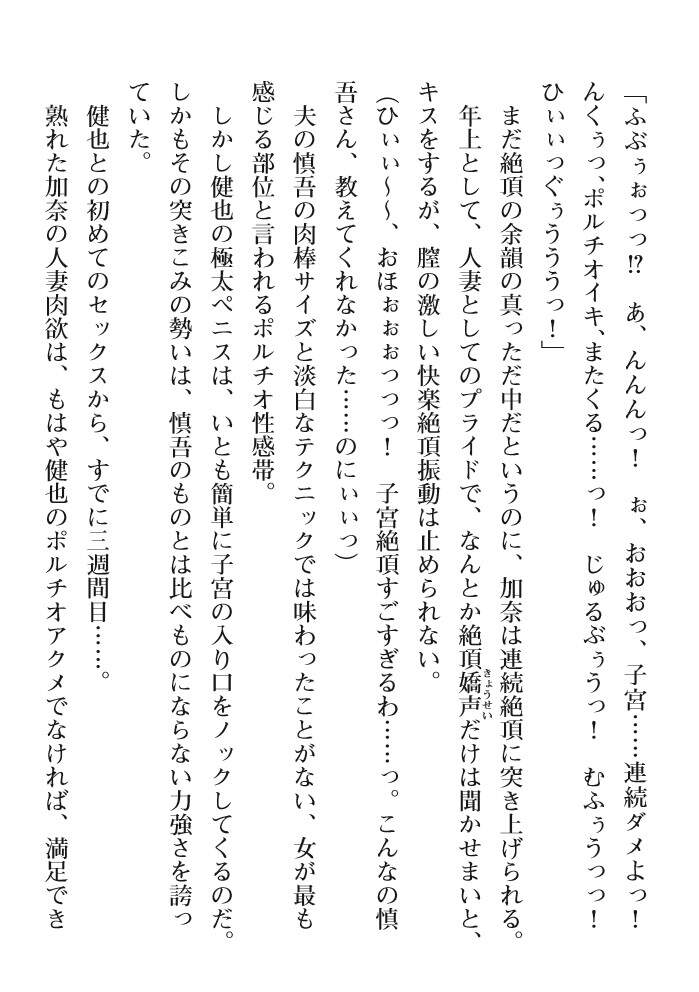 「ふぶぅぉっっ!?　あ、んんんっ！　ぉ、おおおっ、子宮……連続ダメよっ！
んくぅっ、ポルチオイキ、またくる……っ！　じゅるぶぅうっ！　むふぅうっっ！
ひぃぃっぐぅううっ！」
　まだ絶頂の余韻の真っただ中だというのに、加奈は連続絶頂に突き上げられる。
　年上として、人妻としてのプライドで、なんとか絶頂嬌声きょうせいだけは聞かせまいと、
キスをするが、膣の激しい快楽絶頂振動は止められない。
（ひぃぃ～～、おほぉぉぉっっっ！　子宮絶頂すごすぎるわ……っ。こんなの慎
吾さん、教えてくれなかった……のにぃぃっ）
　夫の慎吾の肉棒サイズと淡白なテクニックでは味わったことがない、女が最も
感じる部位と言われるポルチオ性感帯。
　しかし健也の極太ペニスは、いとも簡単に子宮の入り口をノックしてくるのだ。
しかもその突きこみの勢いは、慎吾のものとは比べものにならない力強さを誇っ
ていた。
　健也との初めてのセックスから、すでに三週間目……。
　熟れた加奈の人妻肉欲は、もはや健也のポルチオアクメでなければ、満足でき